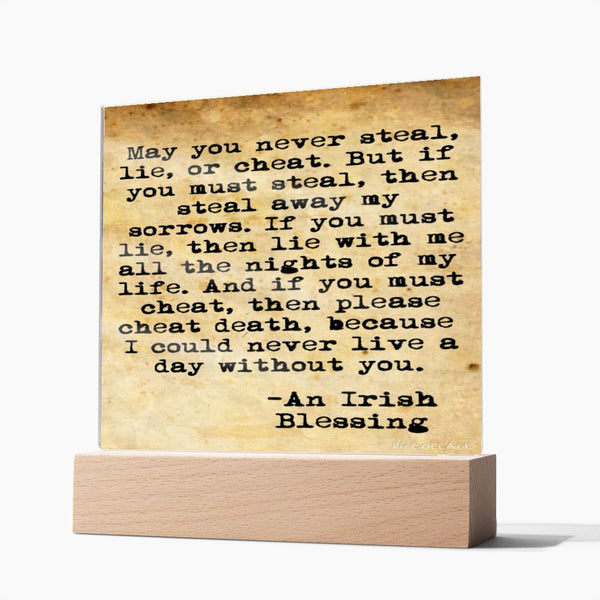 May you never steal,
lie, or cheat. But if
you must steal, then
steal away my
sorrows. If you must
lie, then lie with me
all the nights of my
life. And if you must
cheat, then please
cheat death, because
I could never live a
day without you.
-An Irish
Blessing